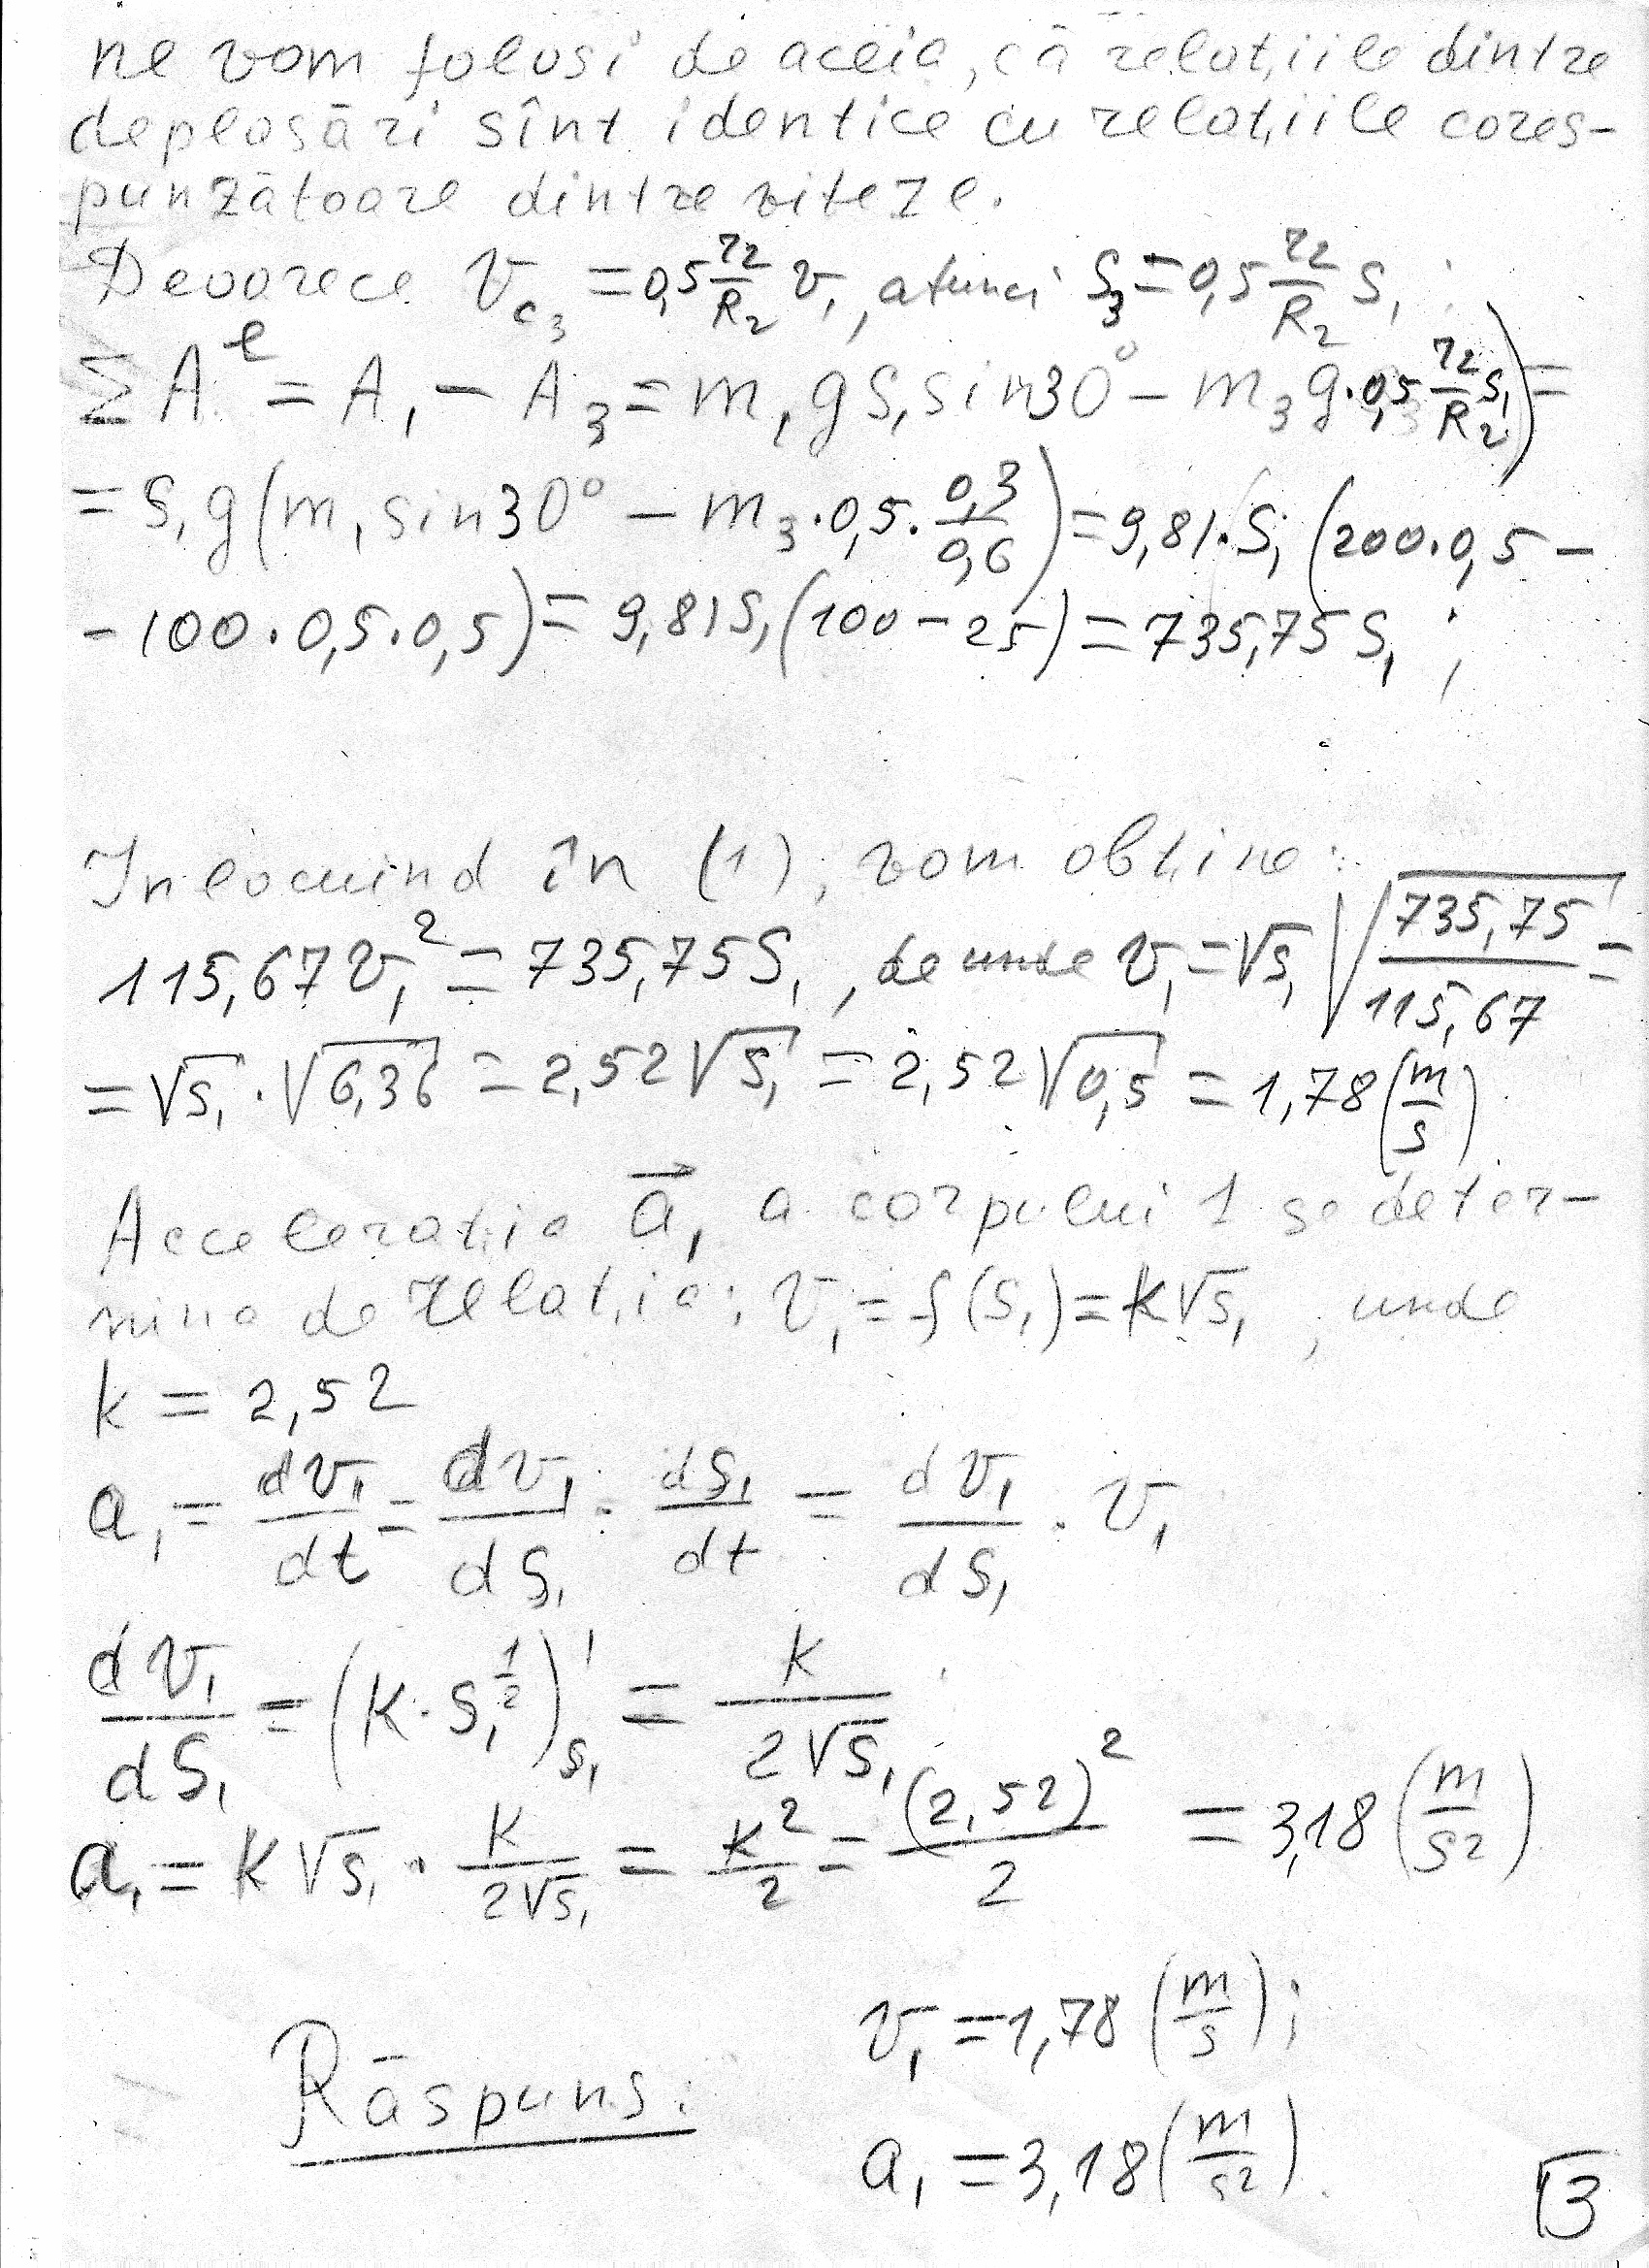 ne vom folosi de aceia, că relațiile dintre
deplasări sînt identice cu relațiile cores-
punzătoare dintre viteze.
Deoarece v_c₃ = 0,5 r₂/R₂ v₁, atunci S₃ = 0,5 r₂/R₂ S₁ ;
ΣAᵉ = A₁ − A₃ = m₁gS₁sin30° − m₃g·0,5 r₂/R₂ S₁) =
= S₁g(m₁sin30° − m₃·0,5·0,3/0,6) = 9,81·S₁(200·0,5 −
− 100·0,5·0,5) = 9,81S₁(100 − 25) = 735,75 S₁ ;
Inlocuind în (1), vom obține:
115,67v₁² = 735,75S₁, de unde v₁ = √S₁ √(735,75/115,67) =
= √S₁ · √6,36 = 2,52√S₁ = 2,52√0,5 = 1,78 (m/s)
Accelerația a⃗₁ a corpului 1 se deter-
mina de relația: v₁ = f(S₁) = k√S₁ , unde
k = 2,52
a₁ = dv₁/dt = dv₁/dS₁ · dS₁/dt = dv₁/dS₁ · v₁
dv₁/dS₁ = (k·S₁^(1/2))'_S₁ = k/(2√S₁)
a₁ = k√S₁ · k/(2√S₁) = k²/2 = (2,52)²/2 = 3,18 (m/s²)
v₁ = 1,78 (m/s);
Răspuns:
a₁ = 3,18 (m/s²).
3